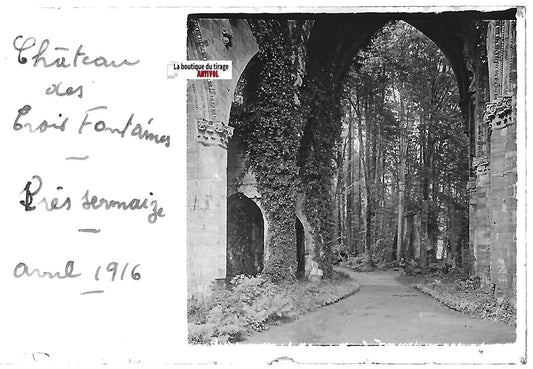 Château
des
Trois Fontaines
Près Sermaize
avril 1916
La boutique du tirage
ANTIVOL